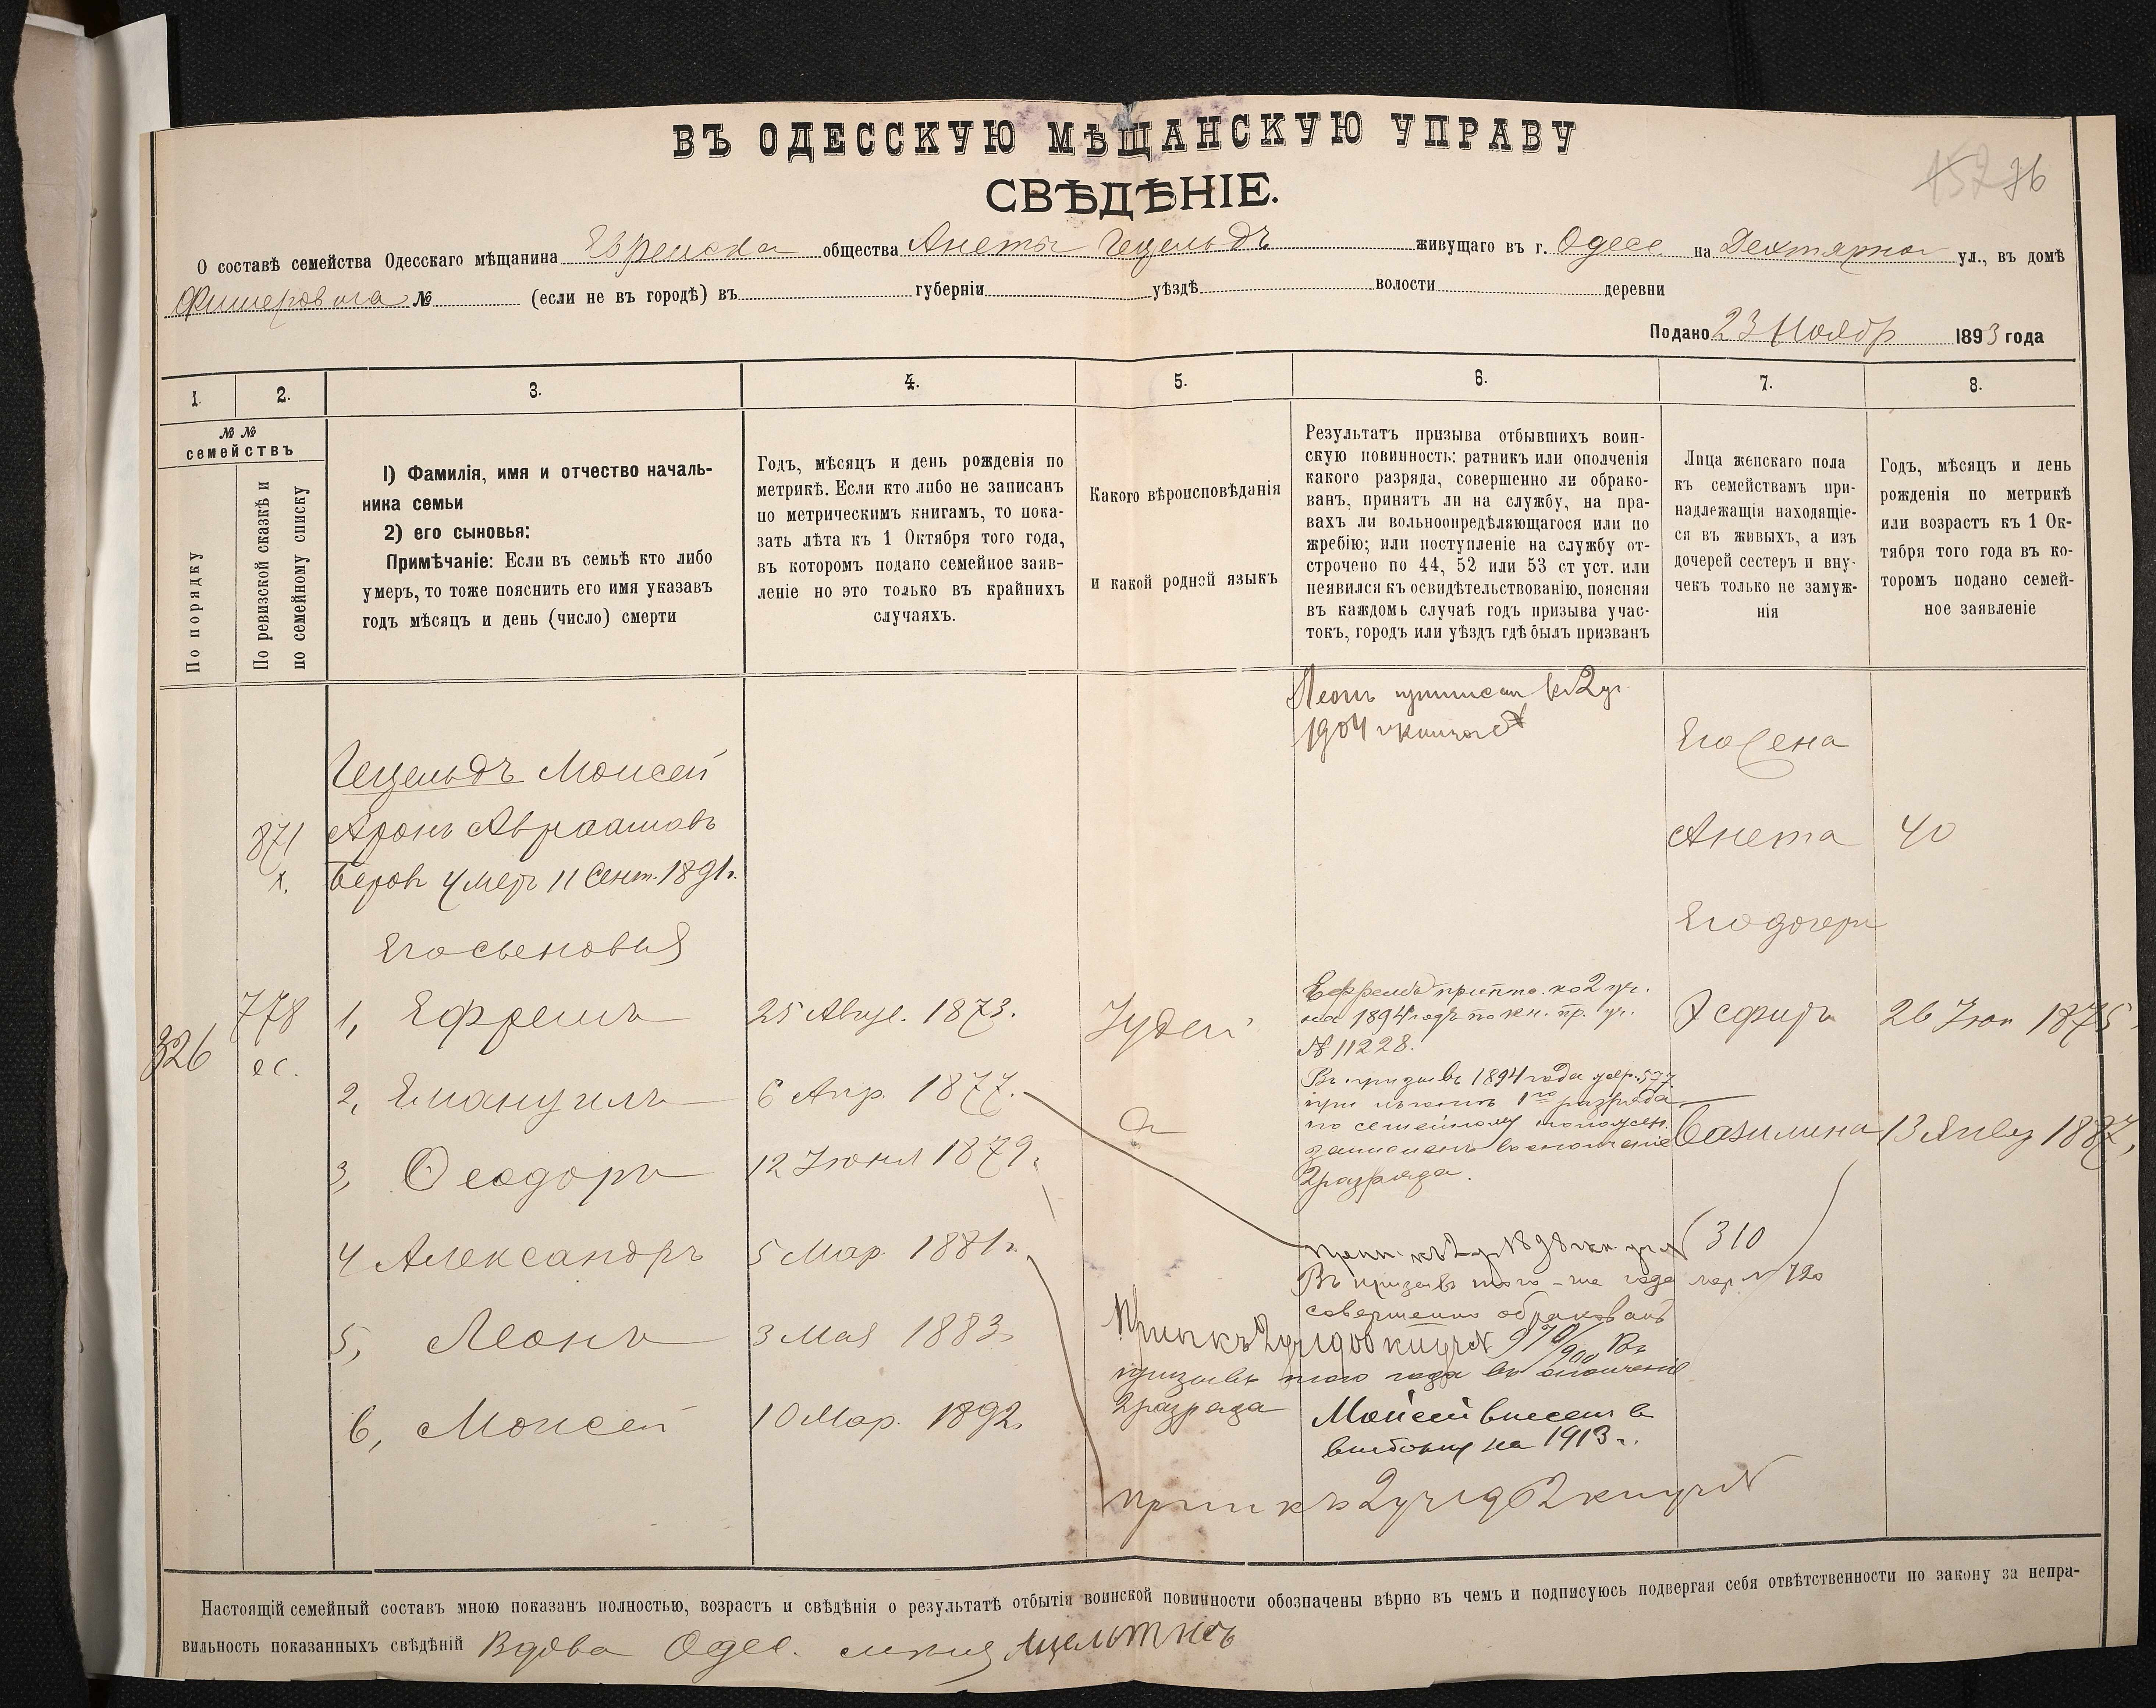 ВЪ ОДЕССКУЮ МѢЩАНСКУЮ УПРАВУ
76
СВѢДѢНІЕ.
О составѣ семейства Одесскаго мѣщанина Еврейска общества Анеты Гецельдъ живущаго въ г. Одесс на Дехтярной ул., въ домѣ
№ (если не въ городѣ) въ губерніи уѣздѣ волости деревни
Подано 23 Ноябр 1893 года
1. 2. 3. 4. 5. 6. 7. 8.
№ №
семействъ
По порядку
По ревизской сказкѣ и
по семейному списку
1) Фамилія, имя и отчество началь-
ника семьи
2) его сыновья:
Примѣчаніе: Если въ семьѣ кто либо
умеръ, то тоже пояснить его имя указавъ
годъ мѣсяцъ и день (число) смерти
Годъ, мѣсяцъ и день рожденія по
метрикѣ. Если кто либо не записанъ
по метрическимъ книгамъ, то пока-
зать лѣта къ 1 Октября того года,
въ которомъ подано семейное заяв-
леніе но это только въ крайнихъ
случаяхъ.
Какого вѣроисповѣданія
и какой родной языкъ
Результатъ призыва отбывшихъ воин-
скую повинность: ратникъ или ополченія
какого разряда, совершенно ли обрако-
ванъ, принятъ ли на службу, на пра-
вахъ ли вольноопредѣляющагося или по
жребію; или поступленіе на службу от-
строчено по 44, 52 или 53 ст уст. или
неявился къ освидѣтельствованію, поясняя
въ каждомъ случаѣ годъ призыва учас-
токъ, городъ или уѣздъ гдѣ былъ призванъ
Лица женскаго пола
къ семействамъ при-
надлежащія находящіе-
ся въ живыхъ, а изъ
дочерей сестеръ и вну-
чекъ только не замуж-
нія
Годъ, мѣсяцъ и день
рожденія по метрикѣ
или возрастъ къ 1 Ок-
тября того года въ ко-
торомъ подано семей-
ное заявленіе
Леонъ приписан къ 2 уч.
1904
Гецельдъ Моисей
Его жена
871 Аронъ Авраамовъ
Анета 40
х. Беровъ умеръ 11 Сент. 1891 г.
Его сыновья
Его дочери
326
778
ес.
1, Ефремъ 25 Авгус. 1873. Іудей
Ефремъ припис. ко 2 уч.
на 1894 годъ по кн. пр. уч.
№ 11228.
Эсфирь 26 Іюн 1875
2, Емануилъ 6 Апр. 1877.
Въ призывъ 1894 года жер. 577
при 1го разряда
по семейному
2 разряда.
13 Январ 1887,
3, Ѳеодоръ 12 Іюня 1879.
4 Александръ 5 Мар. 1881 г.
прип. къ 2 уч 1898 кн. уч № 310
Въ призывъ того-же года жер № 720
совершенно обракованъ
5, Леонъ 3 Мая 1883.
Прип къ 2 уч 1900 кн уч № 970/900 Въ
призывъ того года въ ополченіе
2 разряда
6, Моисей 10 Мар. 1892.
Моисей внесен в
на 1913 г.
прип къ 2 уч 1902 кн уч №
Настоящій семейный составъ мною показанъ полностью, возрастъ и свѣдѣнія о результатѣ отбытія воинской повинности обозначены вѣрно въ чемъ и подписуюсь подвергая себя отвѣтственности по закону за непра-
вильность показанныхъ свѣдѣній Вдова Одес.